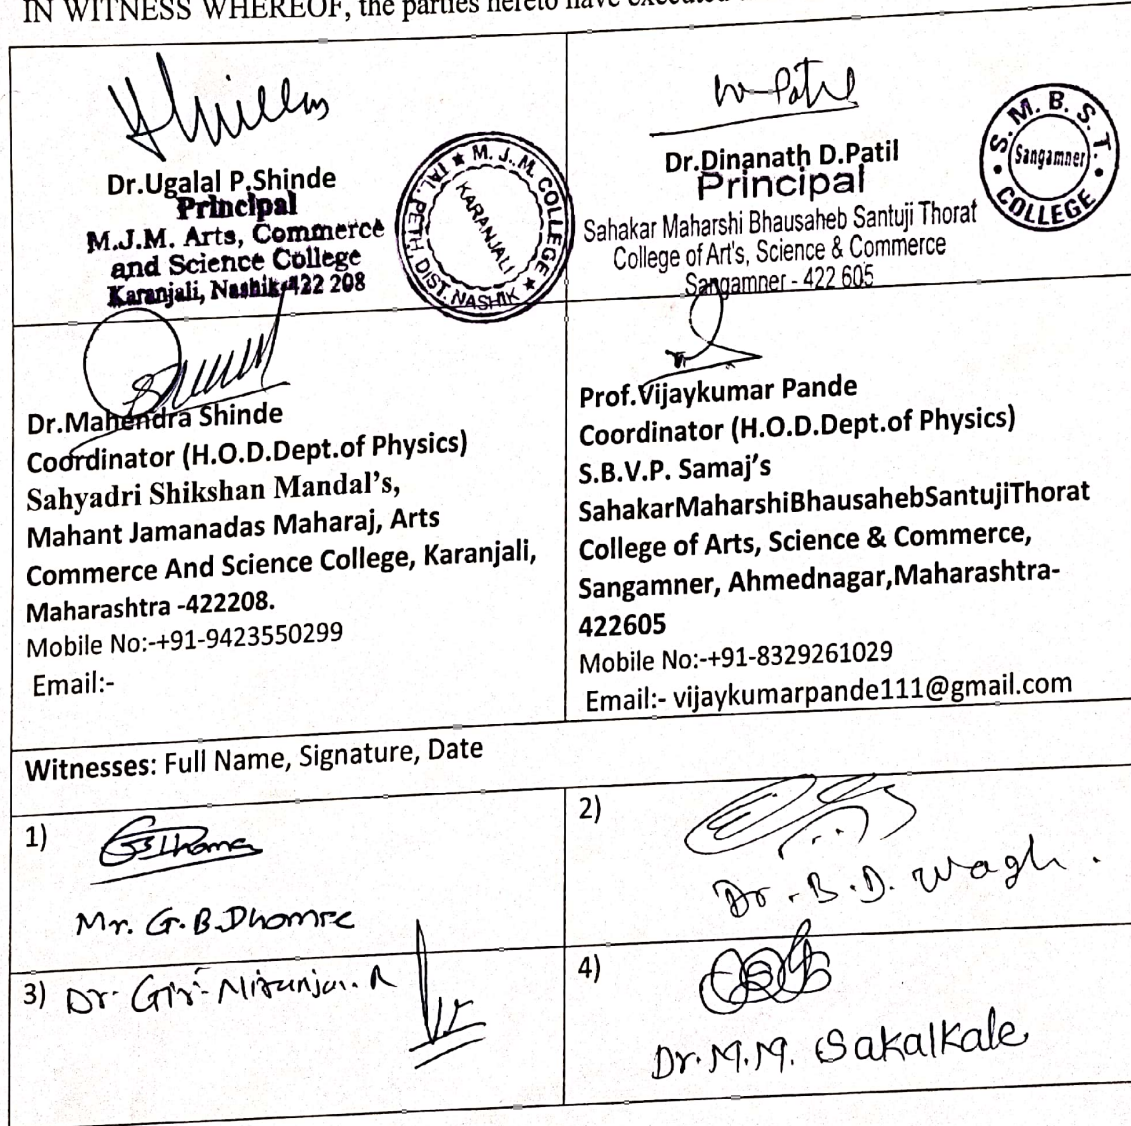 IN WITNESS WHEREOF, the parties hereto have executed
Dr.Ugalal P.Shinde
Principal
M.J.M. Arts, Commerce
and Science College
Karanjali, Nashik-422 208
M. J. M. COLLEGE
TAL. PETH, DIST. NASHIK
KARANJALI
Patil
Dr.Dinanath D.Patil
Principal
Sahakar Maharshi Bhausaheb Santuji Thorat
College of Art's, Science & Commerce
Sangamner - 422 605
S. M. B. S. T.
Sangamner
COLLEGE
Dr.Mahendra Shinde
Coordinator (H.O.D.Dept.of Physics)
Sahyadri Shikshan Mandal's,
Mahant Jamanadas Maharaj, Arts
Commerce And Science College, Karanjali,
Maharashtra -422208.
Mobile No:-+91-9423550299
Email:-
Prof.Vijaykumar Pande
Coordinator (H.O.D.Dept.of Physics)
S.B.V.P. Samaj's
SahakarMaharshiBhausahebSantujiThorat
College of Arts, Science & Commerce,
Sangamner, Ahmednagar,Maharashtra-
422605
Mobile No:-+91-8329261029
Email:- vijaykumarpande111@gmail.com
Witnesses: Full Name, Signature, Date
1)
Mr. G.B.Dhomre
2)
Dr. B.D. Wagh.
3) Dr. Giri Niranjan. R
4)
Dr. M.M. Sakalkale